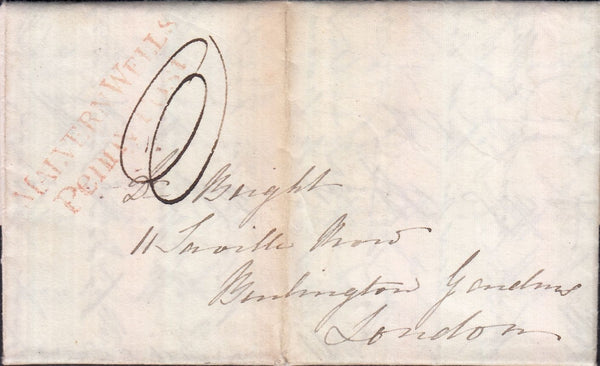 MALVERN WELLS
Penny Post
Dr Bright
11 Saville Row
Burlington Gardens
London